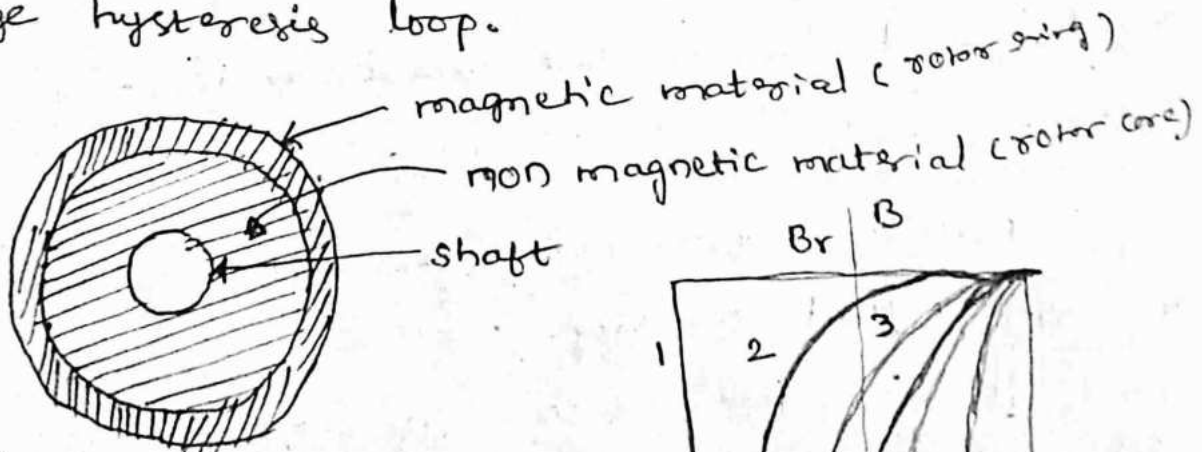 hysteresis loop.
magnetic material (rotor ring)
non magnetic material (rotor core)
shaft
Br B
1 2 3